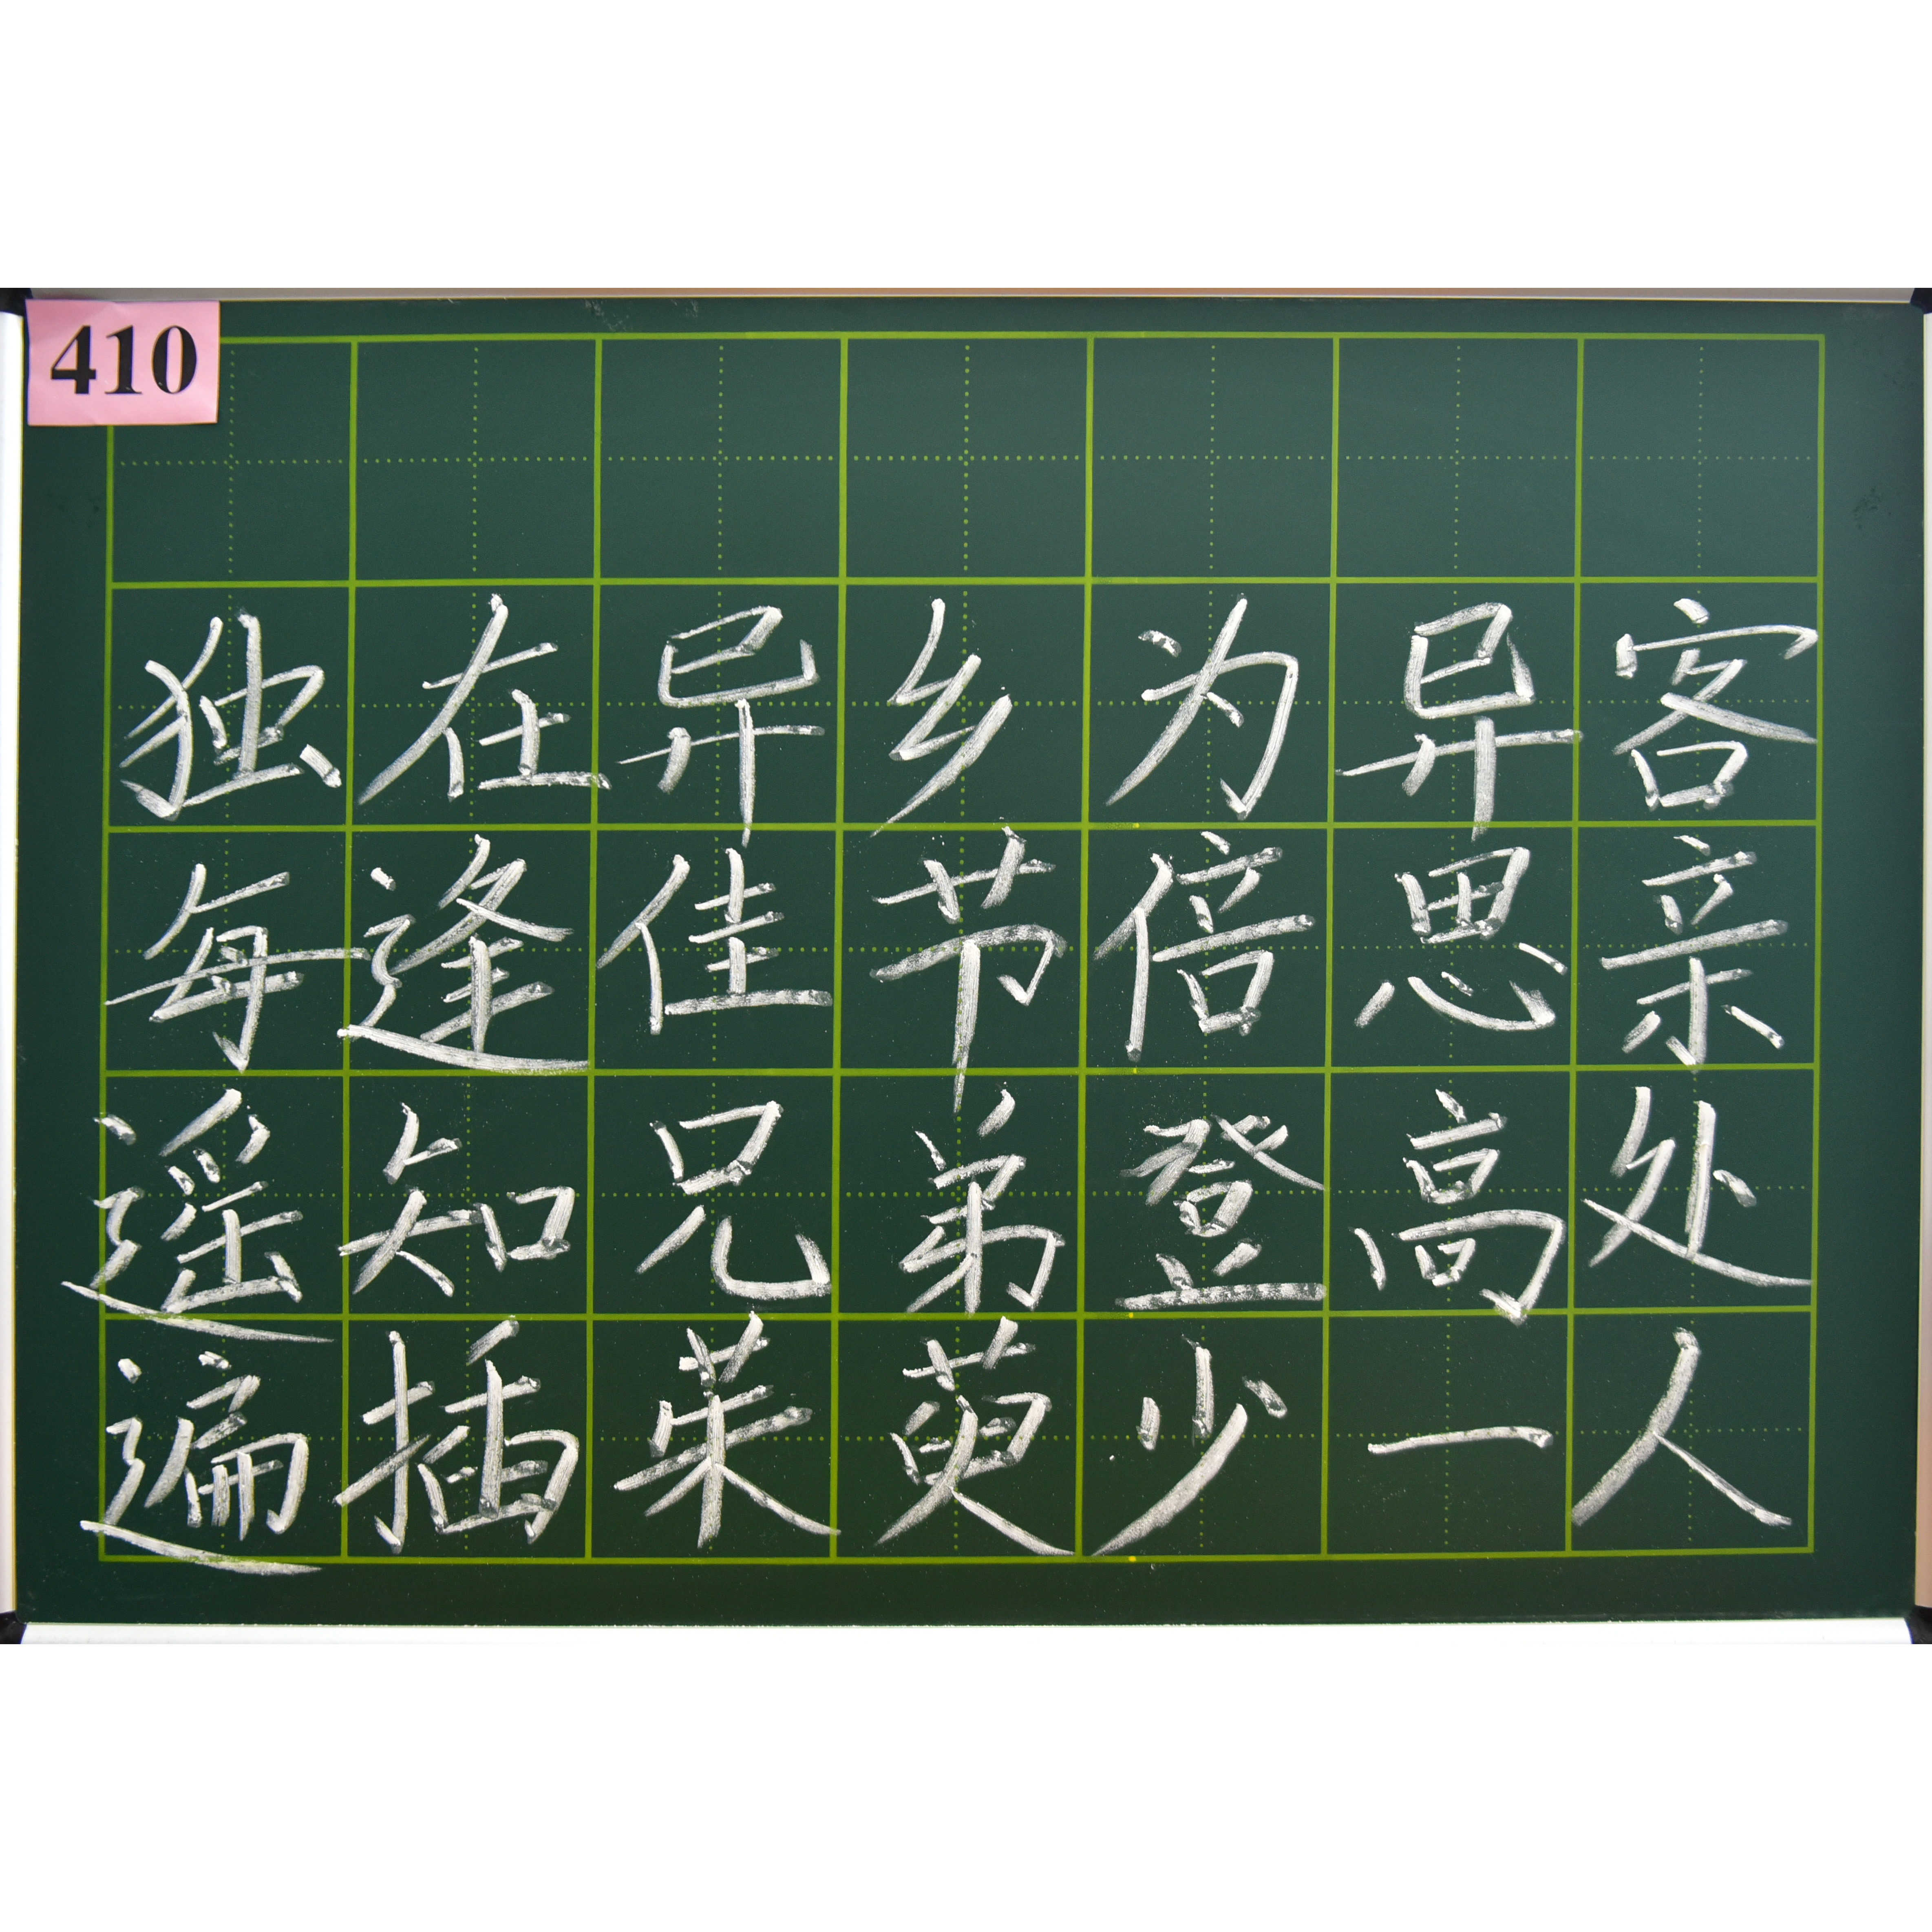 410
独在异乡为异客
每逢佳节倍思亲
遥知兄弟登高处
遍插茱萸少一人